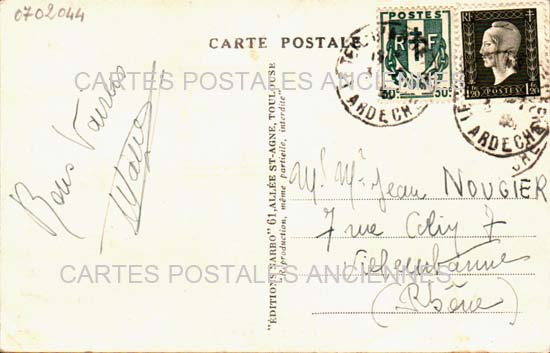 0702044
CARTE POSTALE
POSTES
RF
50c 50c
RF
1f20 POSTES 1f20
ARDECHE
ARDECHE
CARTES POSTALES ANCIENNES
Bons Baisers
"EDITIONS NARBO" 61, ALLÉE ST-AGNE, TOULOUSE
(Reproduction, même partielle, interdite)
Mr Me Jean NOUGIER
7 rue 7
Villeurbanne
(Rhône)
CARTES POSTALES ANCIENNES